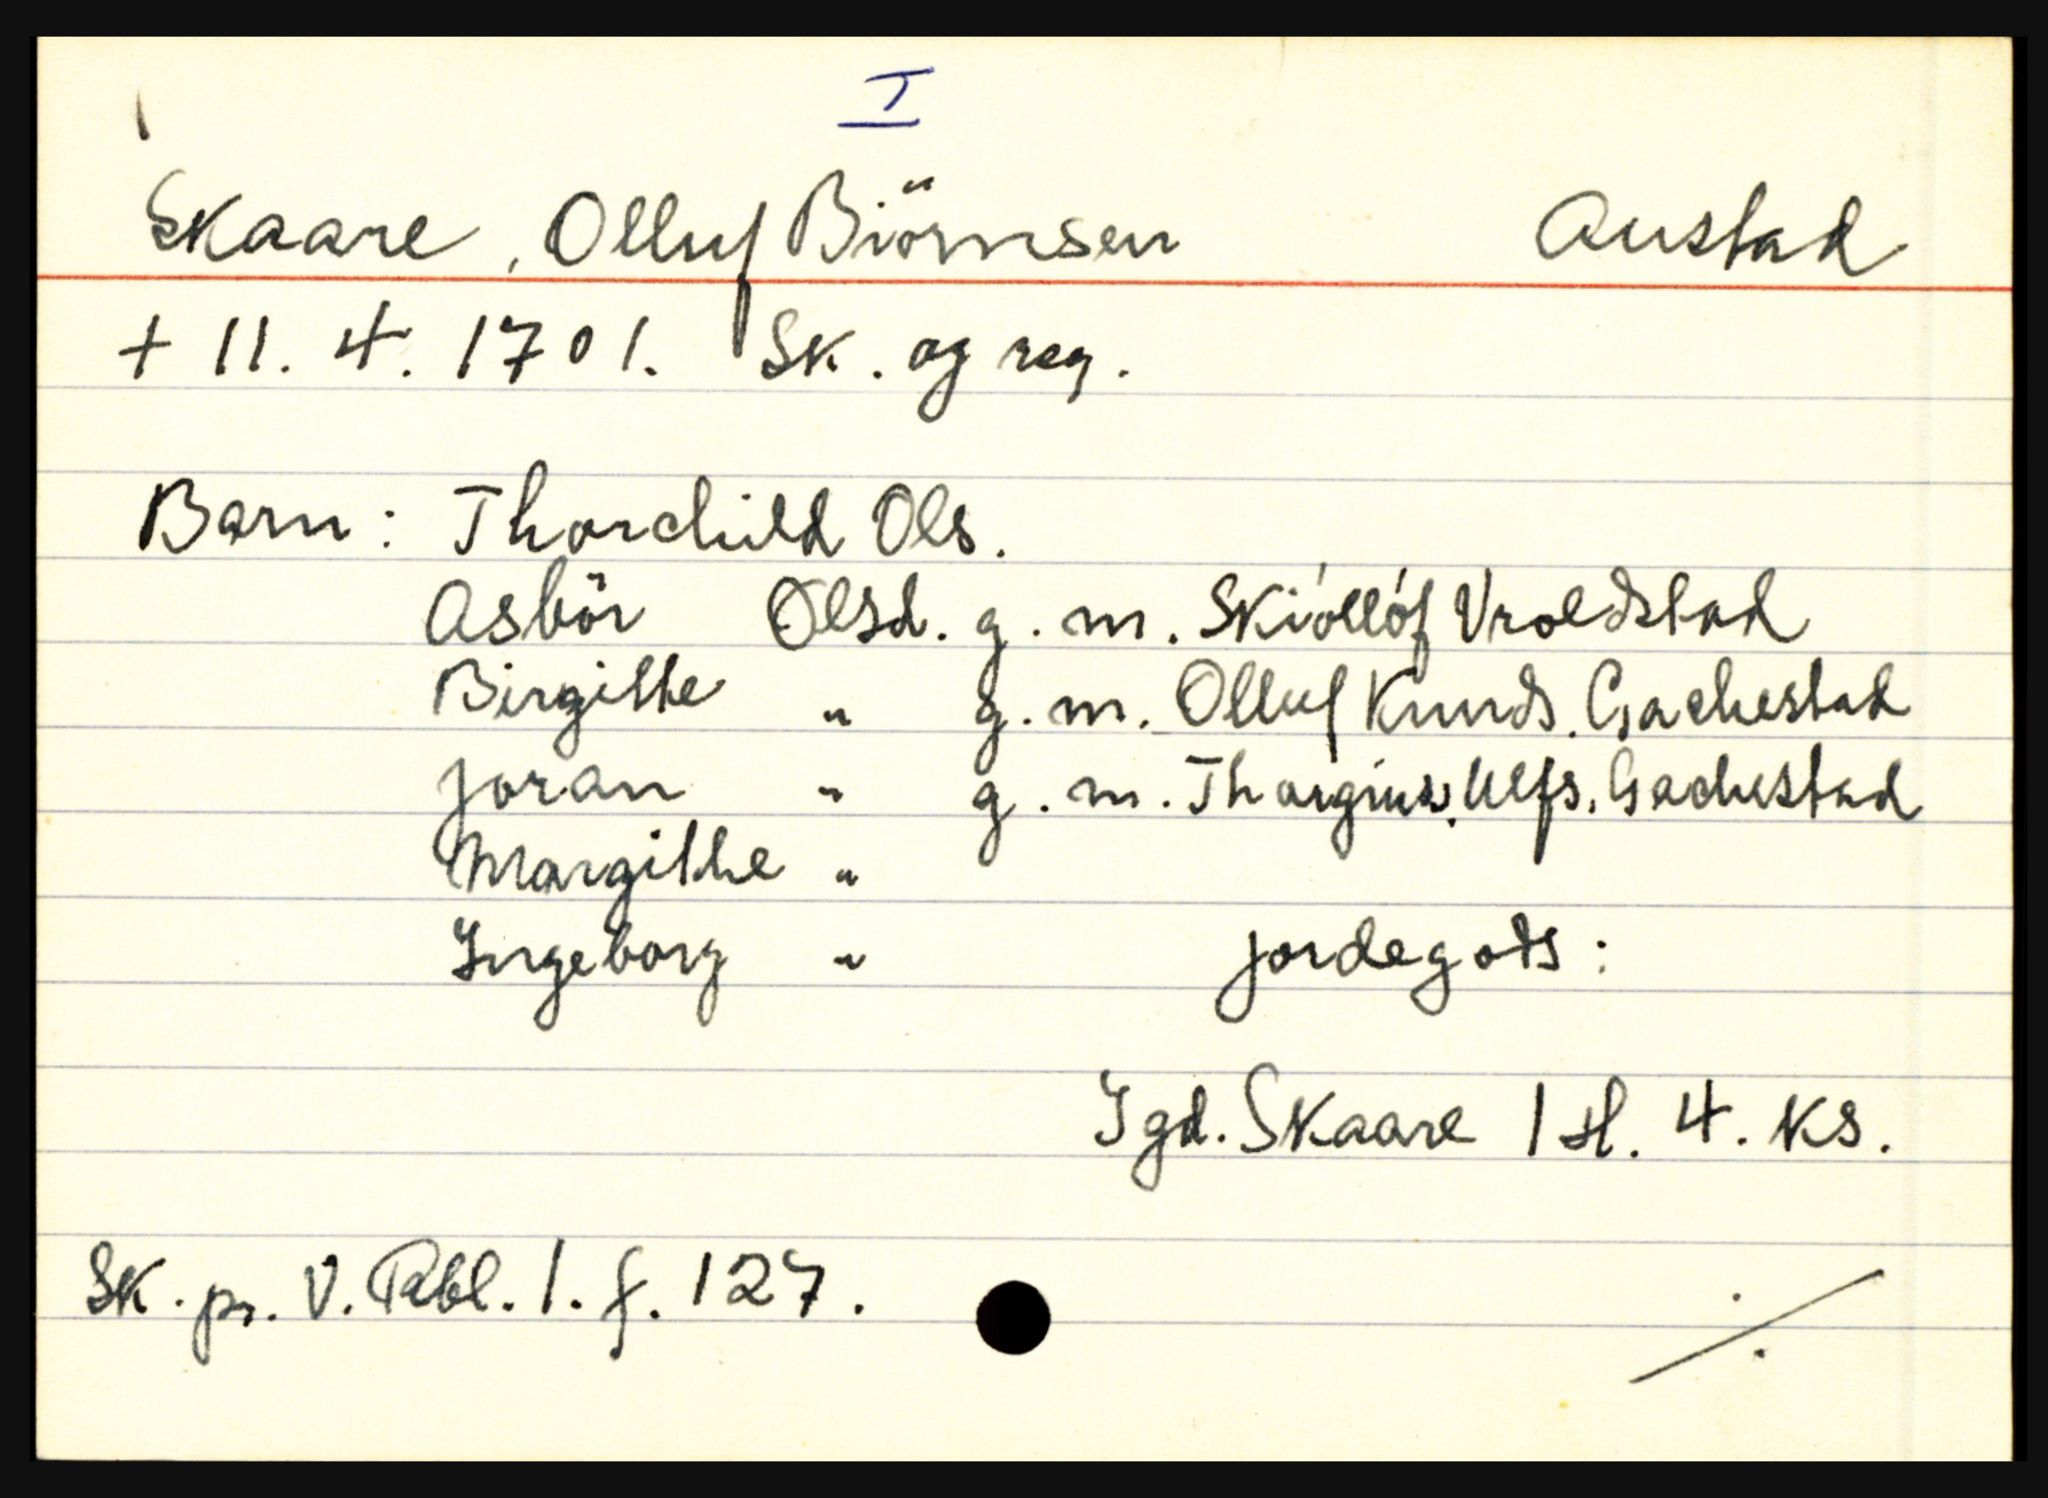 I
Skaare, Olluf Biörnsen Austad
+ 11. 4. 1701. Sk. og reg.
Barn: Thorchild Ols.
Asbör Olsd. g. m. Skióllóf Vroldstad
Birgithe " g. m. Olluf Knuds. Gachestad
Joran " g. m. Thorgius Ulfs. Gachestad
Margithe "
Ingeborg " Jordegods:
I gd. Skaare 1 H. 4. ks.
Sk. pr. V. Rbl. 1. f. 127.
./.